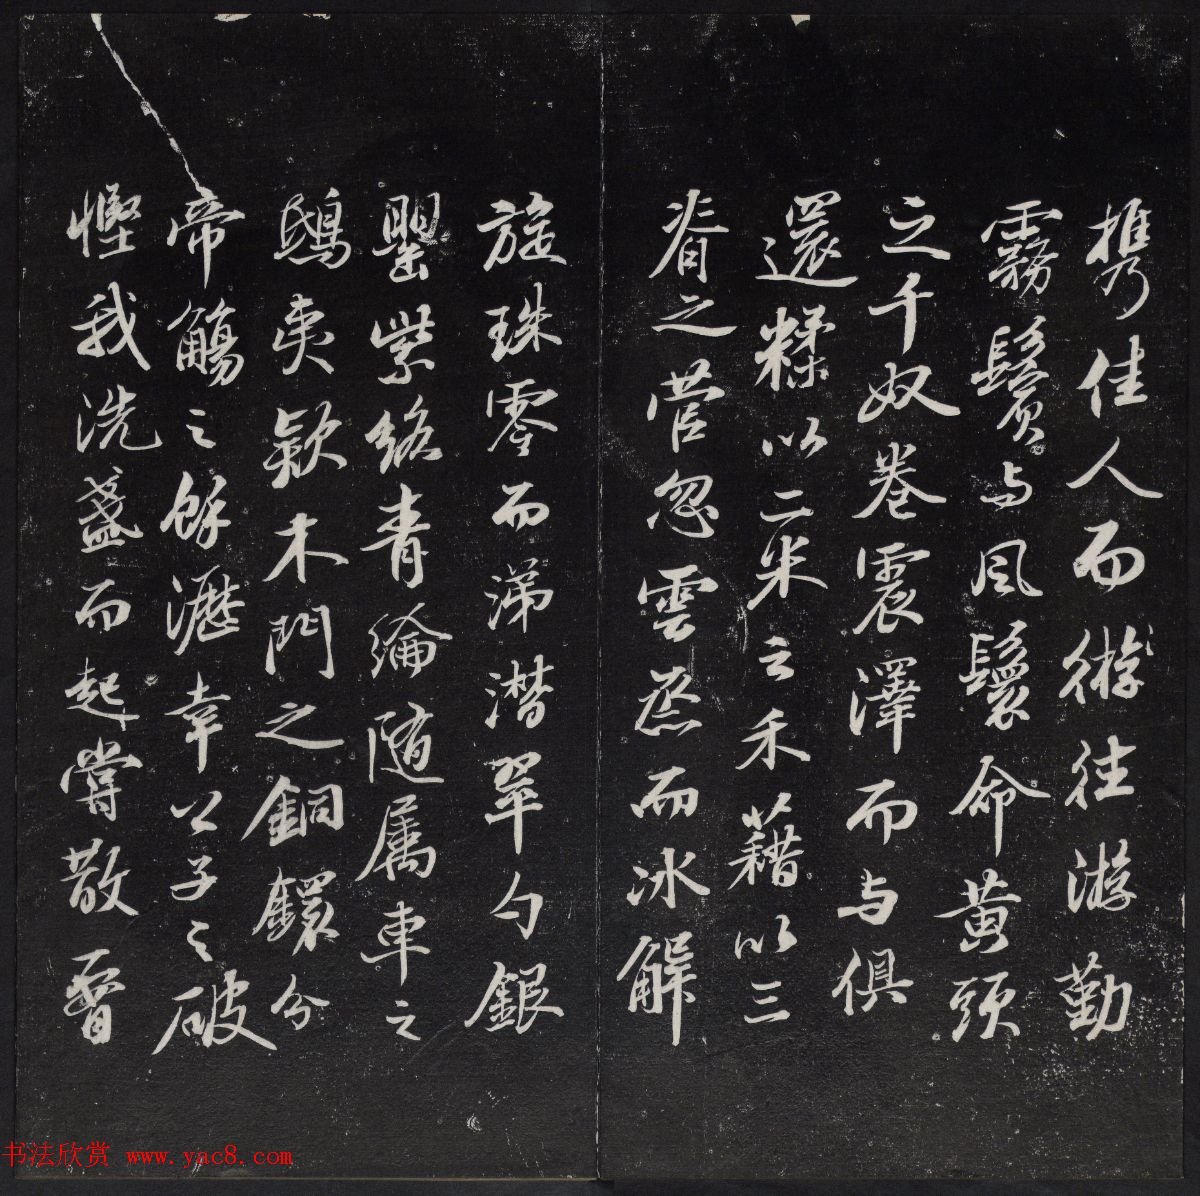 携佳人而遊往游勤
霧鬢与風鬟命黄頭
之千奴卷震澤而与俱
還糅以二米之禾藉以三
脊之菅忽雲烝而冰解
旋珠零而涕潸翠勺銀
罌紫絡青綸随属車之
鴟夷款木門之銅鐶分
帝觴之餘瀝幸公子之破
慳我洗盞而起嘗散腰
书法欣赏 www.yac8.com